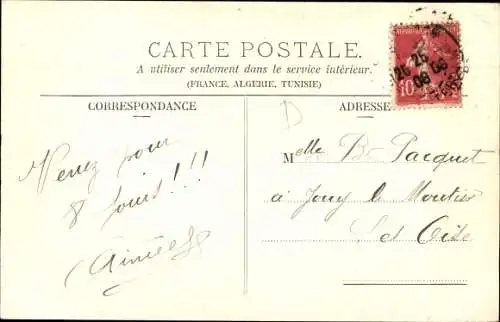 CARTE POSTALE.
A utiliser seulement dans le service intérieur.
(FRANCE, ALGERIE, TUNISIE)
CORRESPONDANCE
ADRESSE
D
Venez pour
8 jours!!!
Aimée
Melle B. Pacquet
à Jouy le Moutier
S et Oise
10
25
08 06